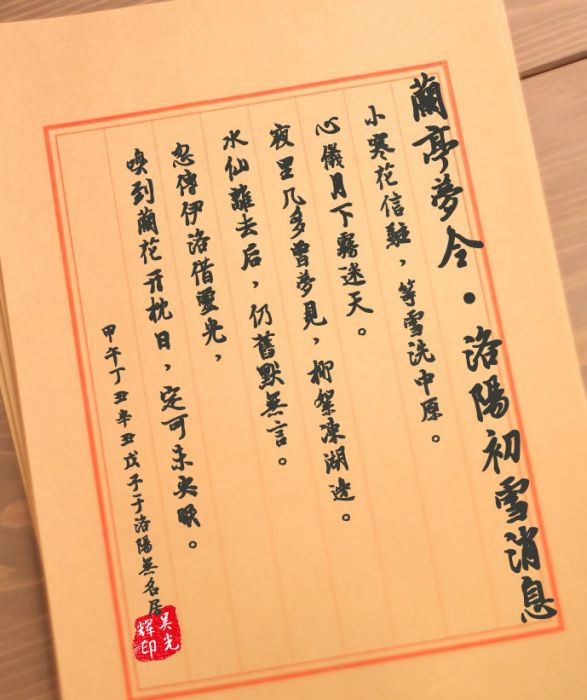 蘭亭夢令·洛陽初雪消息
小寒花信駐，等雪洗中原。
心儀月下霧迷天。
夜里几多曾夢見，柳絮凍湖边。
水仙離去后，仍舊默無言。
忽傳伊洛借靈光，
嗅到蘭花开枕日，定可未央眠。
甲午丁丑辛丑戊子于洛陽無名居
吴光
輝印